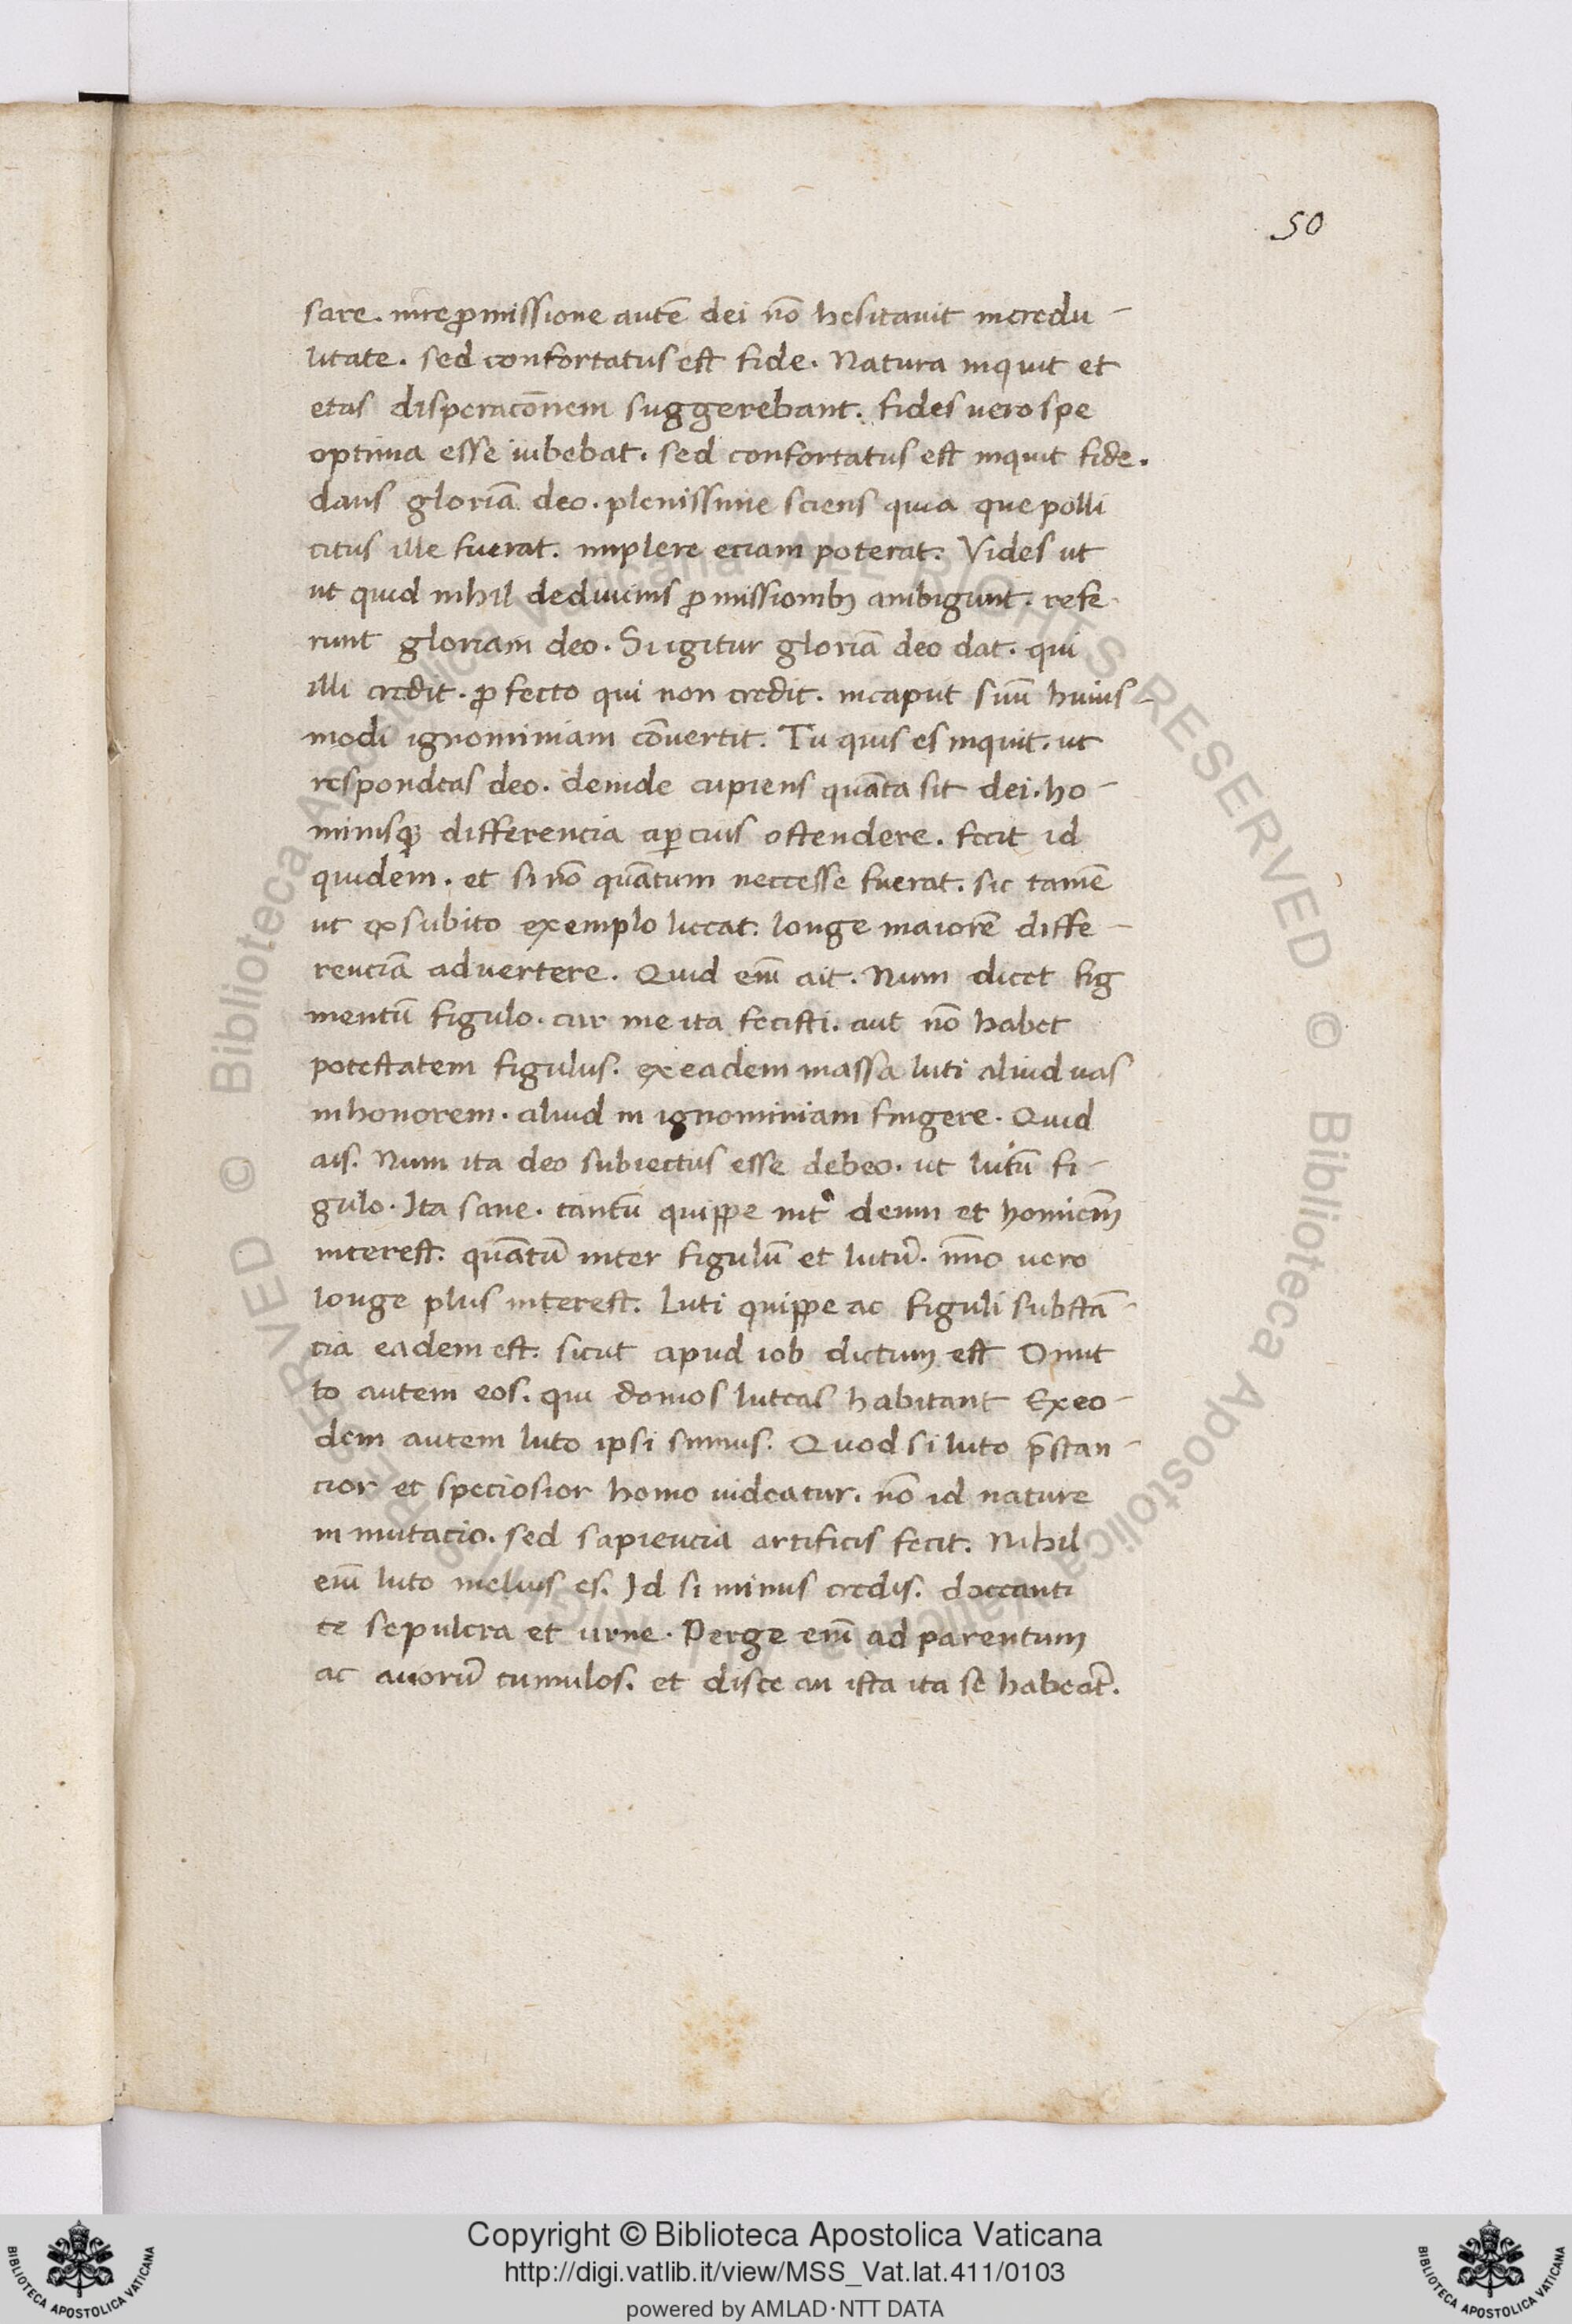 50
sare. in rep̱missione autē dei nō hesitauit incredu-
litate. sed confortatus est fide. Natura inquit et
etas disperacōnem suggerebant. fides uero spe
optima esse iubebat. sed confortatus est inquit fide.
dans gloriā deo. plenissime sciens quia que polli
citus ille fuerat. implere eciam poterat. Vides ut
ut quid nihil de diuinis ꝓmissionibꝫ ambigunt. refe
runt gloriam deo. Si igitur gloriā deo dat. qui
illi credit. ꝓfecto qui non credit. in caput suū huius-
modi ignominiam cōuertit. Tu quis es inquit. ut
respondeas deo. deinde cupiens quāta sit dei. ho-
minisqꝫ differencia apcius ostendere. fecit id
quidem. et si nō quātum neccesse fuerat. sic tamē
ut ex subito exemplo liceat. longe maiorē diffe-
renciā aduertere. Quid eiī ait. Num dicet fig
mentū figulo. cur me ita fecisti. aut nō habet
potestatem figulus. ex eadem massa luti aliud uas
in honorem. aliud in ignominiam fingere. Quid
ais. Num ita deo subiectus esse debeo. ut lutū fi-
gulo. Ita sane. tantū quippe int̉ deum et homiem̄
interest. quātū inter figulū et lutū. immo uero
longe plus interest. Luti quippe ac figuli substā-
cia eadem est. sicut apud iob dictum est Omit
to autem eos. qui domos luteas habitant Ex eo-
dem autem luto ipsi sumus. Quod si luto p̄stan-
cior et speciosior homo uideatur. nō id nature
inmutacio. sed sapiencia artificis fecit. Nihil
eiī luto melius es. Id si minus credis. doceant
te sepulcra et urne. Perge eiī ad parentum
ac auorū tumulos. et disce an ista ita se habeāt.
Copyright © Biblioteca Apostolica Vaticana
http://digi.vatlib.it/view/MSS_Vat.lat.411/0103
powered by AMLAD·NTT DATA
BIBLIOTECA APOSTOLICA VATICANA
BIBLIOTECA APOSTOLICA VATICANA